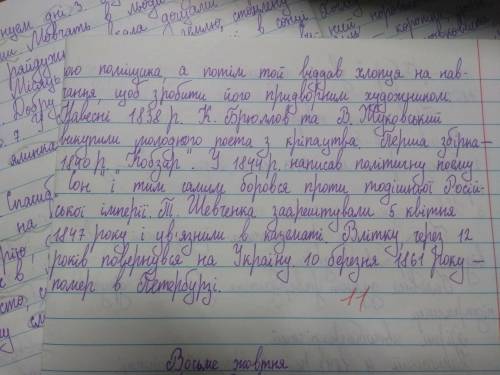 ою поміщика, а потім той віддав хлопця на нав-
чання, щоб зробити його придворним художником.
Навесні 1838 р. К. Брюллов та В. Жуковський
викупили молодого поета з кріпацтва. Перша збірка –
1840 р. "Кобзар". У 1844 р. написав політичну поему
"Сон" і тим самим боровся проти тодішньої Росій-
ської імперії. Т. Шевченка заарештували 5 квітня
1847 року і ув'язнили в казематі. Влітку, через 12
років повернувся на Україну. 10 березня 1861 року –
помер в Петербурзі.
11
Восьме жовтня